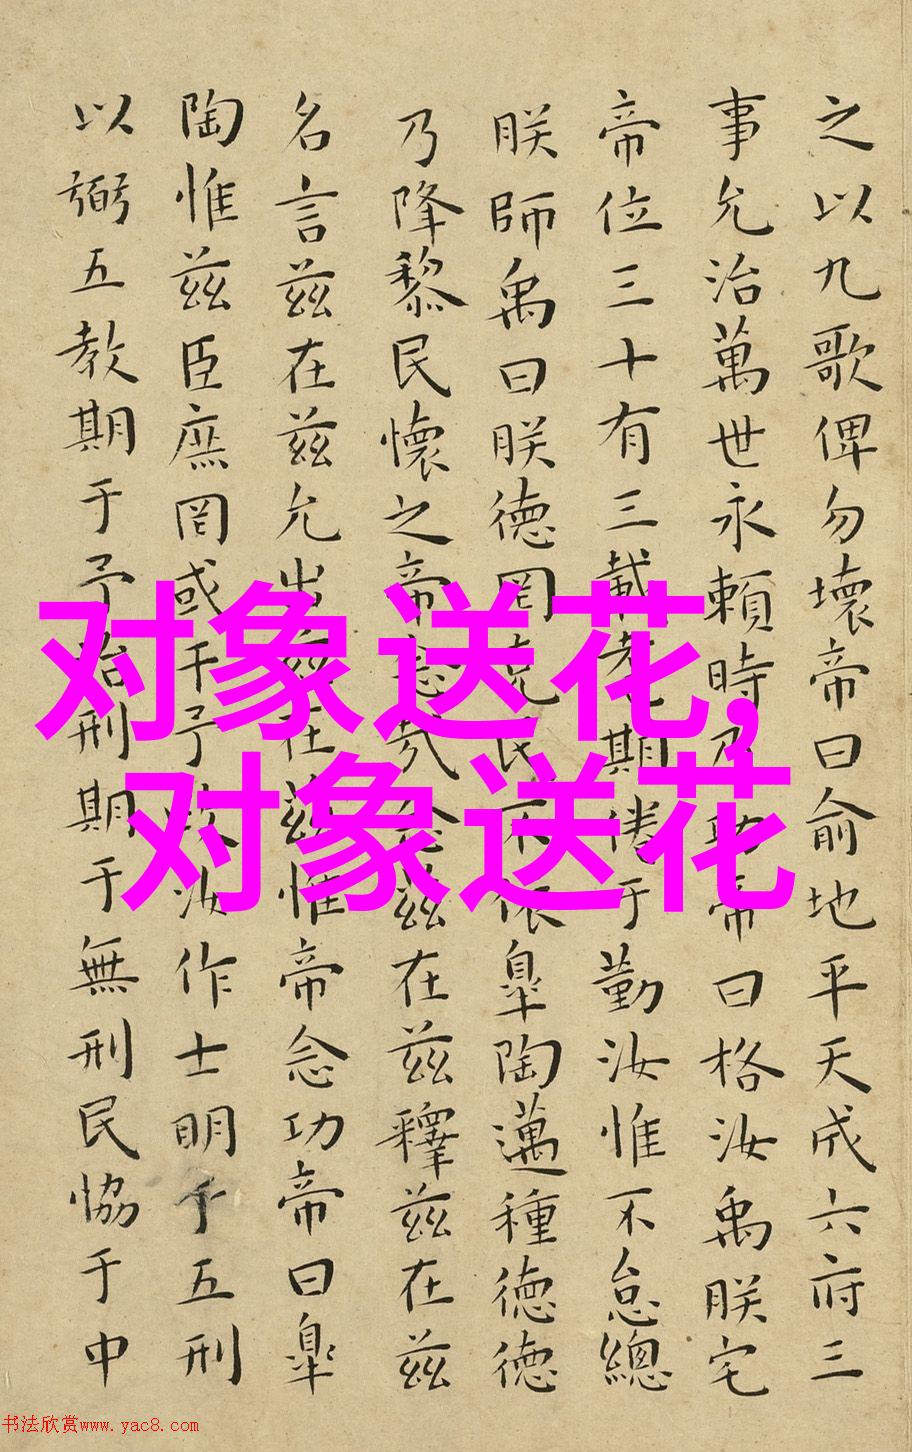 之以九歌俾勿壞帝曰俞地平天成六府三
事允治萬世永賴時乃功帝曰格汝禹朕宅
帝位三十有三載耄期倦于勤汝惟不怠總
朕師禹曰朕德罔克民不依臯陶邁種德德
乃降黎民懷之帝念哉念茲在茲釋茲在茲
名言茲在茲允出茲在茲惟帝念功帝曰臯
陶惟茲臣庶罔或干予政汝作士明于五刑
以弼五教期于予治刑期于無刑民協于中
对象送花,
对象送花
书法欣赏www.yac8.com